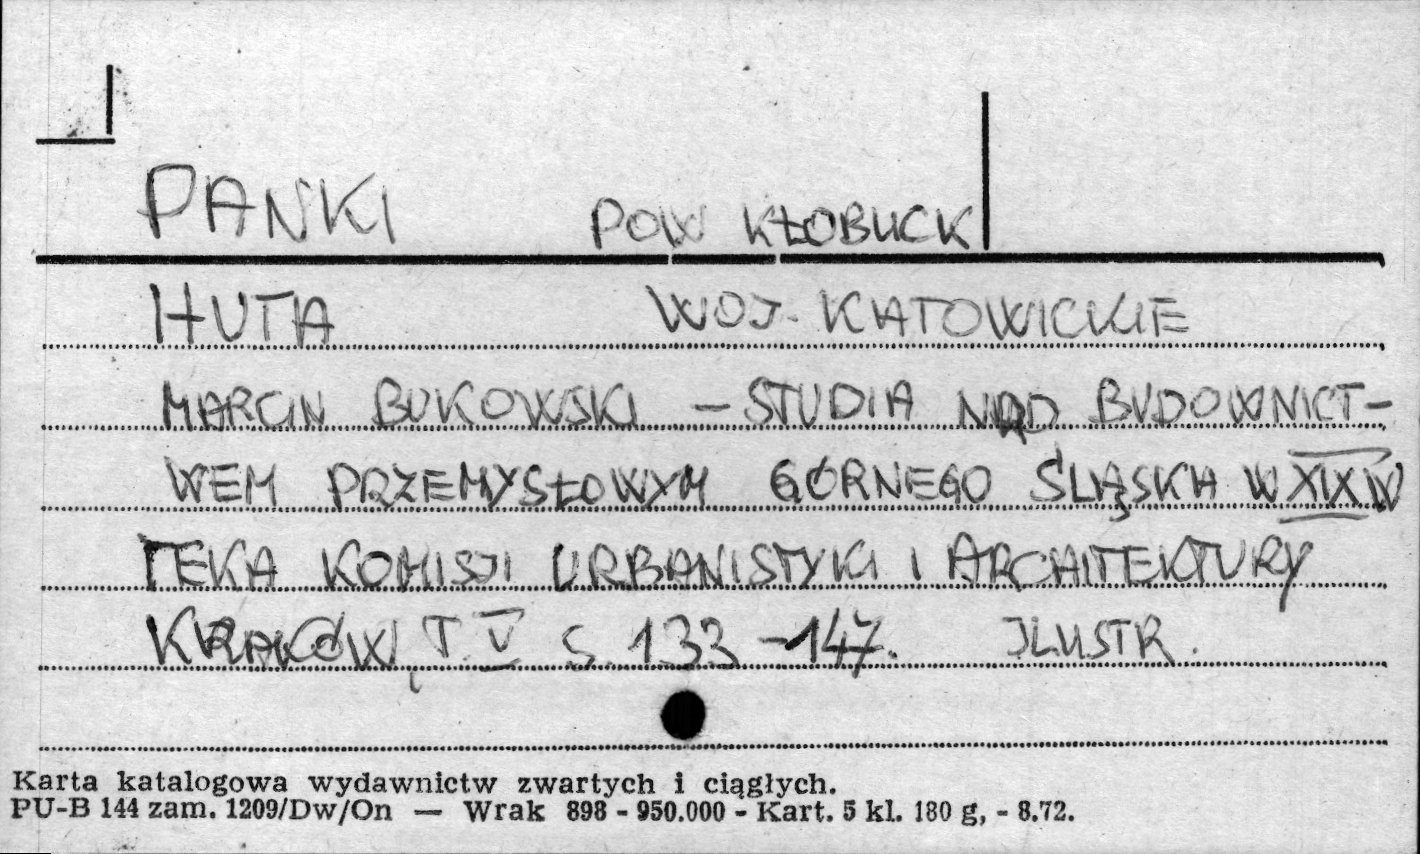 PANKI POW KŁOBUCK
HUTA WOJ. KATOWICKIE
MARCIN BUKOWSKI – STUDIA NAD BUDOWNICT-
WEM PRZEMYSŁOWYM GÓRNEGO ŚLĄSKA W XIX W
TEKA KOMISJI URBANISTYKI I ARCHITEKTURY
KRAKÓW, T. V S. 133 – 147. ILUSTR.
Karta katalogowa wydawnictw zwartych i ciągłych.
PU-B 144 zam. 1209/Dw/On — Wrak 898 - 950.000 - Kart. 5 kl. 180 g, - 8.72.